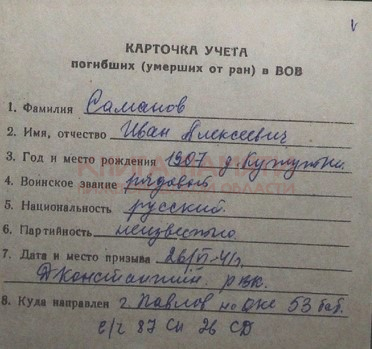 КАРТОЧКА УЧЕТА
погибших (умерших от ран) в ВОВ
1. Фамилия Саманов
2. Имя, отчество Иван Алексеевич
3. Год и место рождения 1907 д.
4. Воинское звание рядовой
5. Национальность русский
6. Партийность неизвестно
7. Дата и место призыва 26/VI-41г.
РВК.
8. Куда направлен г. Павлов на Оке 53 бат.
87 СП 26 СД